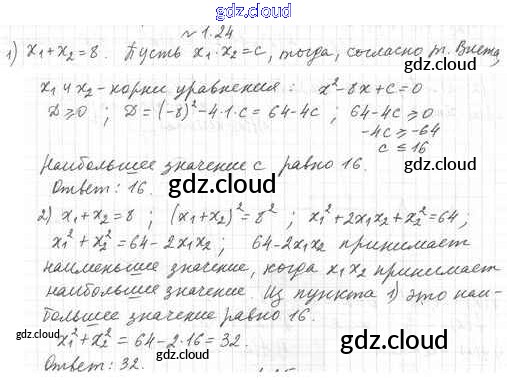 gdz.cloud
№ 1.24
1) x₁+x₂=8. Пусть x₁·x₂=c, тогда, согласно т. Виета,
gdz.cloud
x₁ и x₂ - корни уравнения: x²-8x+c=0
D≥0; D=(-8)²-4·1·c=64-4c; 64-4c≥0
-4c≥-64
c≤16
gdz.cloud
Наибольшее значение c равно 16.
Ответ: 16.
gdz.cloud
2) x₁+x₂=8; (x₁+x₂)²=8²; x₁²+2x₁x₂+x₂²=64;
x₁²+x₂²=64-2x₁x₂; 64-2x₁x₂ принимает
наименьшее значение, когда x₁x₂ принимает
наибольшее значение. Из пункта 1) это наи-
большее значение равно 16.
gdz.cloud
gdz.cloud
gdz.cloud
x₁²+x₂²=64-2·16=32.
Ответ: 32.
gdz.cloud